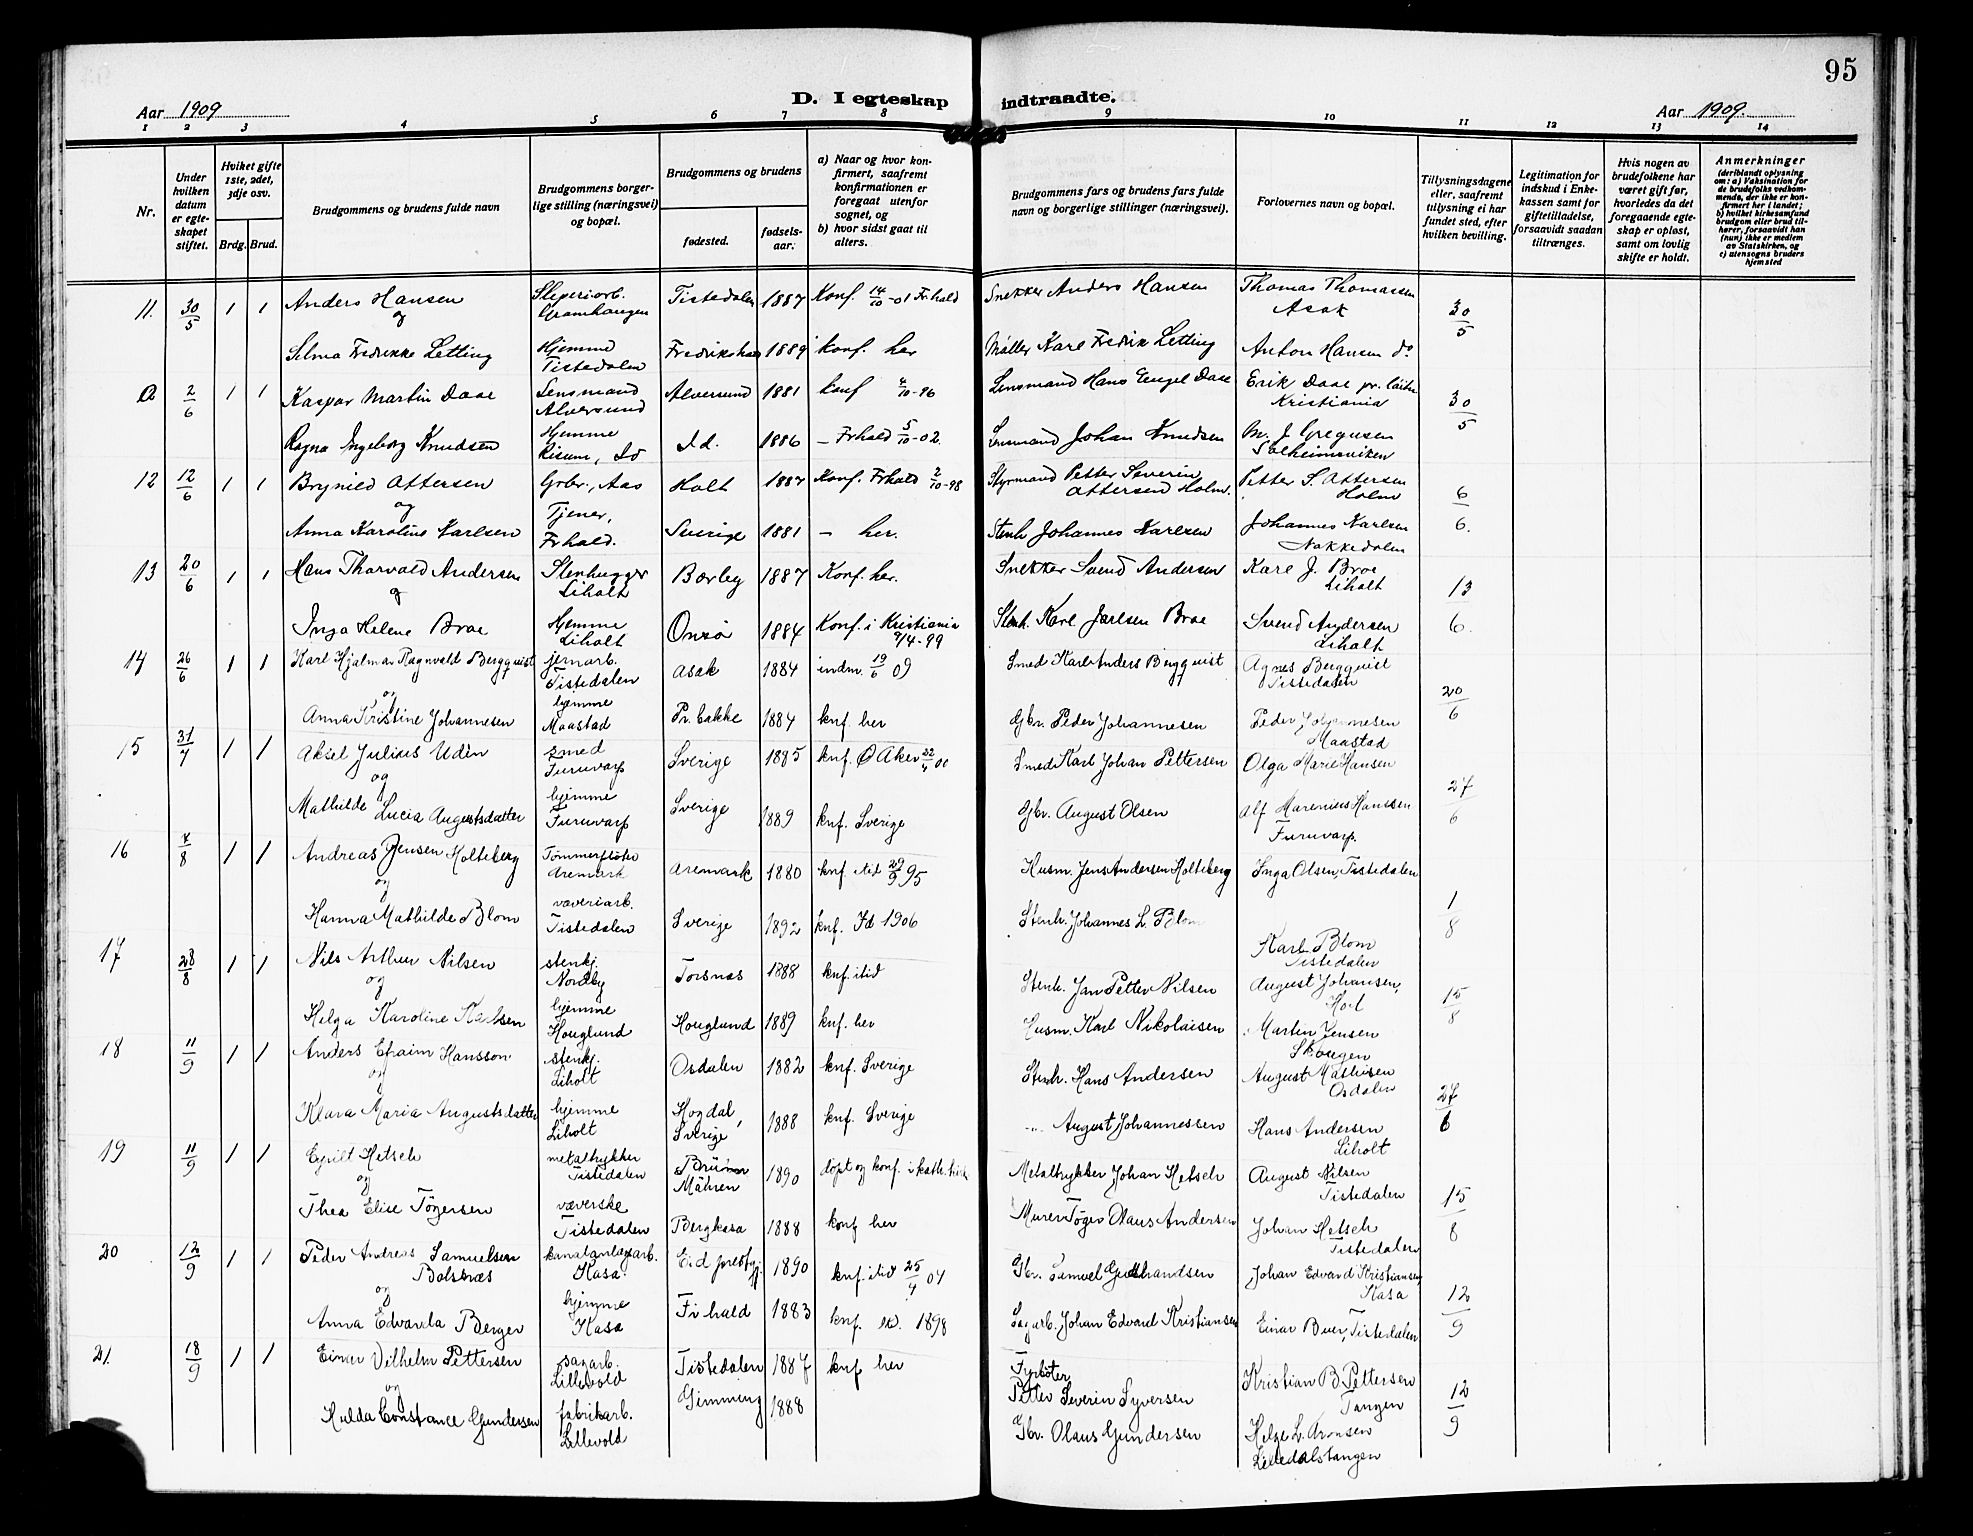 95
D. I egteskap indtraadte.
Aar 1909
Aar 1909.
1 2 3 4 5 6 7 8 9 10 11 12 13 14
Nr.
Under hvilken datum er egteskapet stiftet.
Hvilket gifte 1ste, 2det, 3dje osv.
Brdg. Brud.
Brudgommens og brudens fulde navn
Brudgommens borgerlige stilling (næringsvei) og bopæl.
Brudgommens og brudens
fødested.
fødselsaar.
a) Naar og hvor konfirmert, saafremt konfirmationen er foregaat utenfor sognet, og
b) hvor sidst gaat til alters.
Brudgommens fars og brudens fars fulde navn og borgerlige stillinger (næringsvei).
Forlovernes navn og bopæl.
Tillysningsdagene eller, saafremt tillysning ei har fundet sted, efter hvilken bevilling.
Legitimation for indskud i Enkekassen samt for giftetilladelse, forsaavidt saadan tiltrænges.
Hvis nogen av brudefolkene har været gift før, hvorledes da det foregaaende egteskap er opløst, samt om lovlig skifte er holdt.
Anmerkninger (deriblandt oplysning om: a) Vaksination for de brudefolks vedkommende, der ikke er konfirmert her i landet; b) hvilket kirkesamfund brudgom eller brud tilhører, forsaavidt han (hun) ikke er medlem av Statskirken, og c) utensogns bruders hjemsted
11. 30/5 1 1 Anders Hansen Sliperiarb. Tistedalen 1887 Konf. 14/10-01 Frhald Snekker Anders Hansen Thomas Thomassen Asak 30/5
og
Selma Fredrikke Letting Hjemme Tistedalen Fredriksha 1889 konf. her Møller Karl Fredrik Letting Anton Hansen do
a 2/6 1 1 Kaspar Martin Daae Lensmand Alversund Alversund 1881 konf 4/10-96 Lensmand Hans Engel Daae Erik Daae Kristiania 30/5
Ragna Ingeborg Knudsen Hjemme Risum, Id Id. 1886 – Frhald 5/10-02. Lensmand Johan Knudsen M. J. Gregusen Solheimsviken
12 12/6 1 1 Brynild Ottersen Grbr., Aas Holt 1887 Konf. Frhald 2/10-98 Styrmand Petter Severin Ottersen Holm. Petter S. Ottersen Holm 6/6.
og
Anna Karoline Karlsen Tjener, Frhald. Sverige 1881 – her. Stenh Johannes Karlsen Johannes Karlsen Nakkedalen
13 20/6 1 1 Hans Thorvald Andersen Stenhugger Liholt Borby 1887 Konf. her. Snekker Svend Andersen Karl J. Broe Liholt 13/6.
og
Inga Helene Broe Hjemme Liholt Onsø 1884 Konf. i Kristiania 9/4-99 Stenh. Karl Joelsen Broe Svend Andersen Liholt
14 26/6 1 1 Karl Hjalmar Ragnvald Bergquist jernarb. Tistedalen Asak 1884 indm. 19/6 09 Smed Karl Anders Bergquist Agnes Bergquist Tistedalen 20/6
og
Anna Kristine Johannesen hjemme Maastad Pr. bakke 1884 knf. her Gbr. Peder Johannesen Peder Johannesen Maastad
15 31/7 1 1 Aksel Julius Udén smed Furuvarp Sverige 1885 knf. Ø Aker 22/4 00 Smed Karl Johan Pettersen Olga Marie Hansen 27/6
og
Mathilde Lucia Augustsdatter hjemme Furuvarp Sverige 1889 knf. Sverige Gbr. August Olsen Alf Marenius Hanssen Furuvarp.
16 7/8 1 1 Andreas Jensen Holteberg Tømmerfløter Aremark Aremark 1880 knf. itid 29/9 95 Husm. Jens Andersen Holteberg Inga Olsen, Tistedalen 1/8
og
Hanna Mathilde Blom væveriarb. Tistedalen Sverige 1892 knf. Id 1906 Stenh. Johannes L. Blom Karl Blom Tistedalen
17 28/8 1 1 Nils Arthur Nilsen stenhj. Nordby Torsnæs 1888 knf. itid Stenh. Jan Petter Nilsen August Johansen, Hov 15/8
og
Helga Karoline Karlsen hjemme Houglund Houglund 1889 knf. her Husm. Karl Nikolaisen Martin Jensen Skougen
18 11/9 1 1 Anders Efraim Hansson stenhj. Liholt Osdalen 1882 knf. Sverige Stenh. Hans Andersen August Mathisen Osdalen 27/6
og
Klara Maria Augustsdatter hjemme Liholt Hogdal, Sverige 1888 knf. Sverige –"– August Johannessen Hans Andersen Liholt
19 11/9 1 1 Hetsch metaltrykker Tistedalen Brünn Mähren 1890 døpt og konf. i kath. kirk Metaltrykker Johan Hetsch August Nilsen Tistedalen 15/8
og
Thea Elise Tøgersen væverske Tistedalen Bergkasa 1888 konf her Murer Tøger Olaus Andersen Johan Hetsch Tistedalen
20 12/9 1 1 Peder Andreas Samuelsen Bolsnæs kanalanlægsarb. Kasa. Eid prestgj. 1890 knf. itid 25/4 04 Gbr. Samuel Gulbrandsen Johan Edvard Kristiansen, Kasa 12/9
og
Anna Edvarda Berger hjemme Kasa Frhald 1883 knf. 1898 Sagarb. Johan Edvard Kristiansen Einar Buer, Tistedalen
21. 18/9 1 1 Einar Vilhelm Pettersen sagarb. Lillevold Tistedalen 1887 knf her Fyrbøter Petter Severin Syversen Kristian B. Pettersen Tangen 12/9
og
Hulda Constance Gundersen fabrikarb. Lillevold Gimming 1888 Gbr. Olaus Gundersen Helge L. Aronsen Lilledalstangen